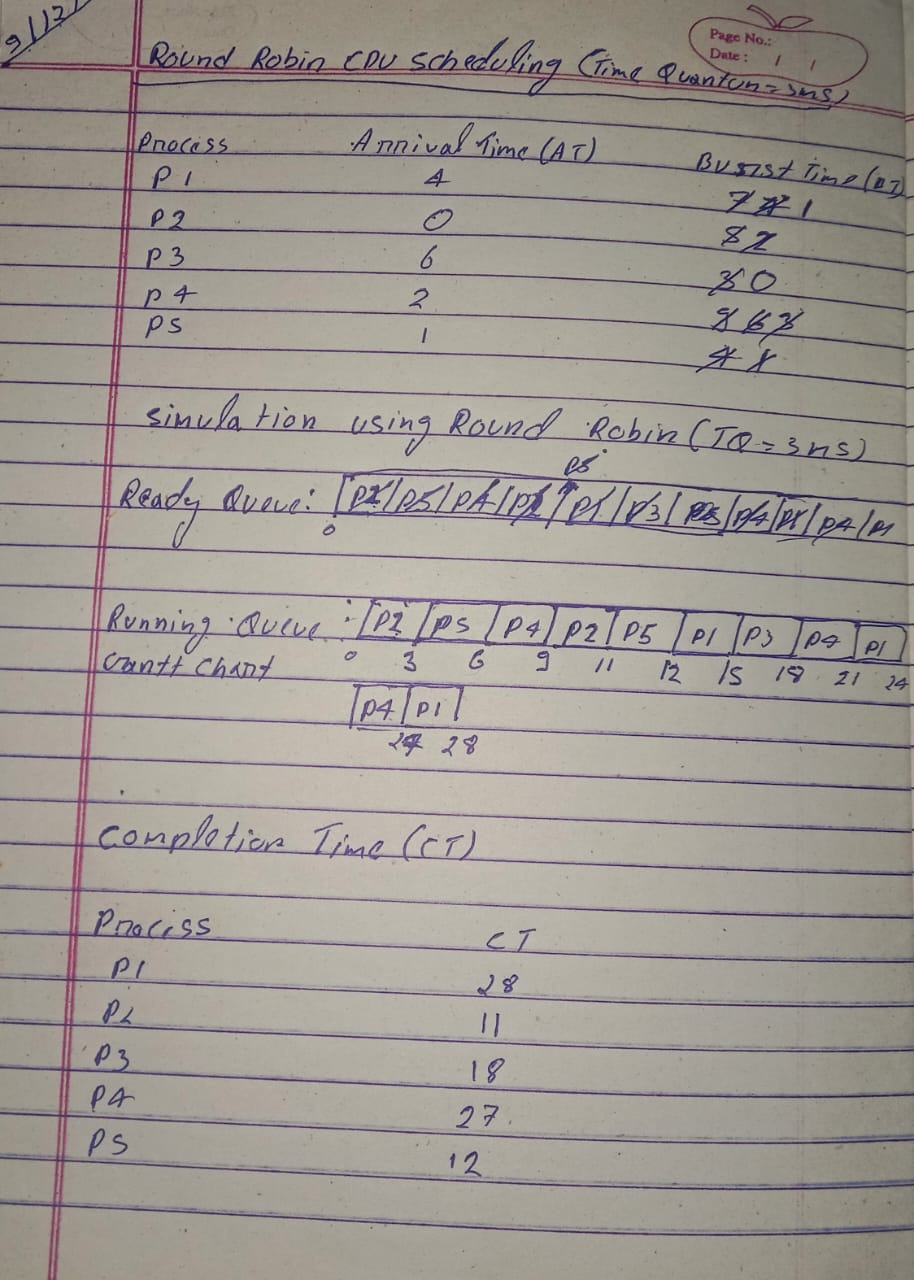 9/12/
Page No.:
Date: / /
Round Robin CPU scheduling (Time Quantum = 3ms)
Process Arrival Time (AT) Burst Time (BT)
P1 4 7 4 1
P2 0 5 2
P3 6 3 0
P4 2 9 6 3
P5 1 4 1
Simulation using Round Robin (TQ = 3ms)
P5
Ready Queue: P2 | P5 | P4 | P2 | P1 | P3 | P4 | P1 | P4 | P1
0
Running Queue :- P2 | P5 | P4 | P2 | P5 | P1 | P3 | P4 | P1
Gantt Chart 0 3 6 9 11 12 15 18 21 24
P4 | P1
27 28
Completion Time (CT)
Process CT
P1 28
P2 11
P3 18
P4 27
P5 12